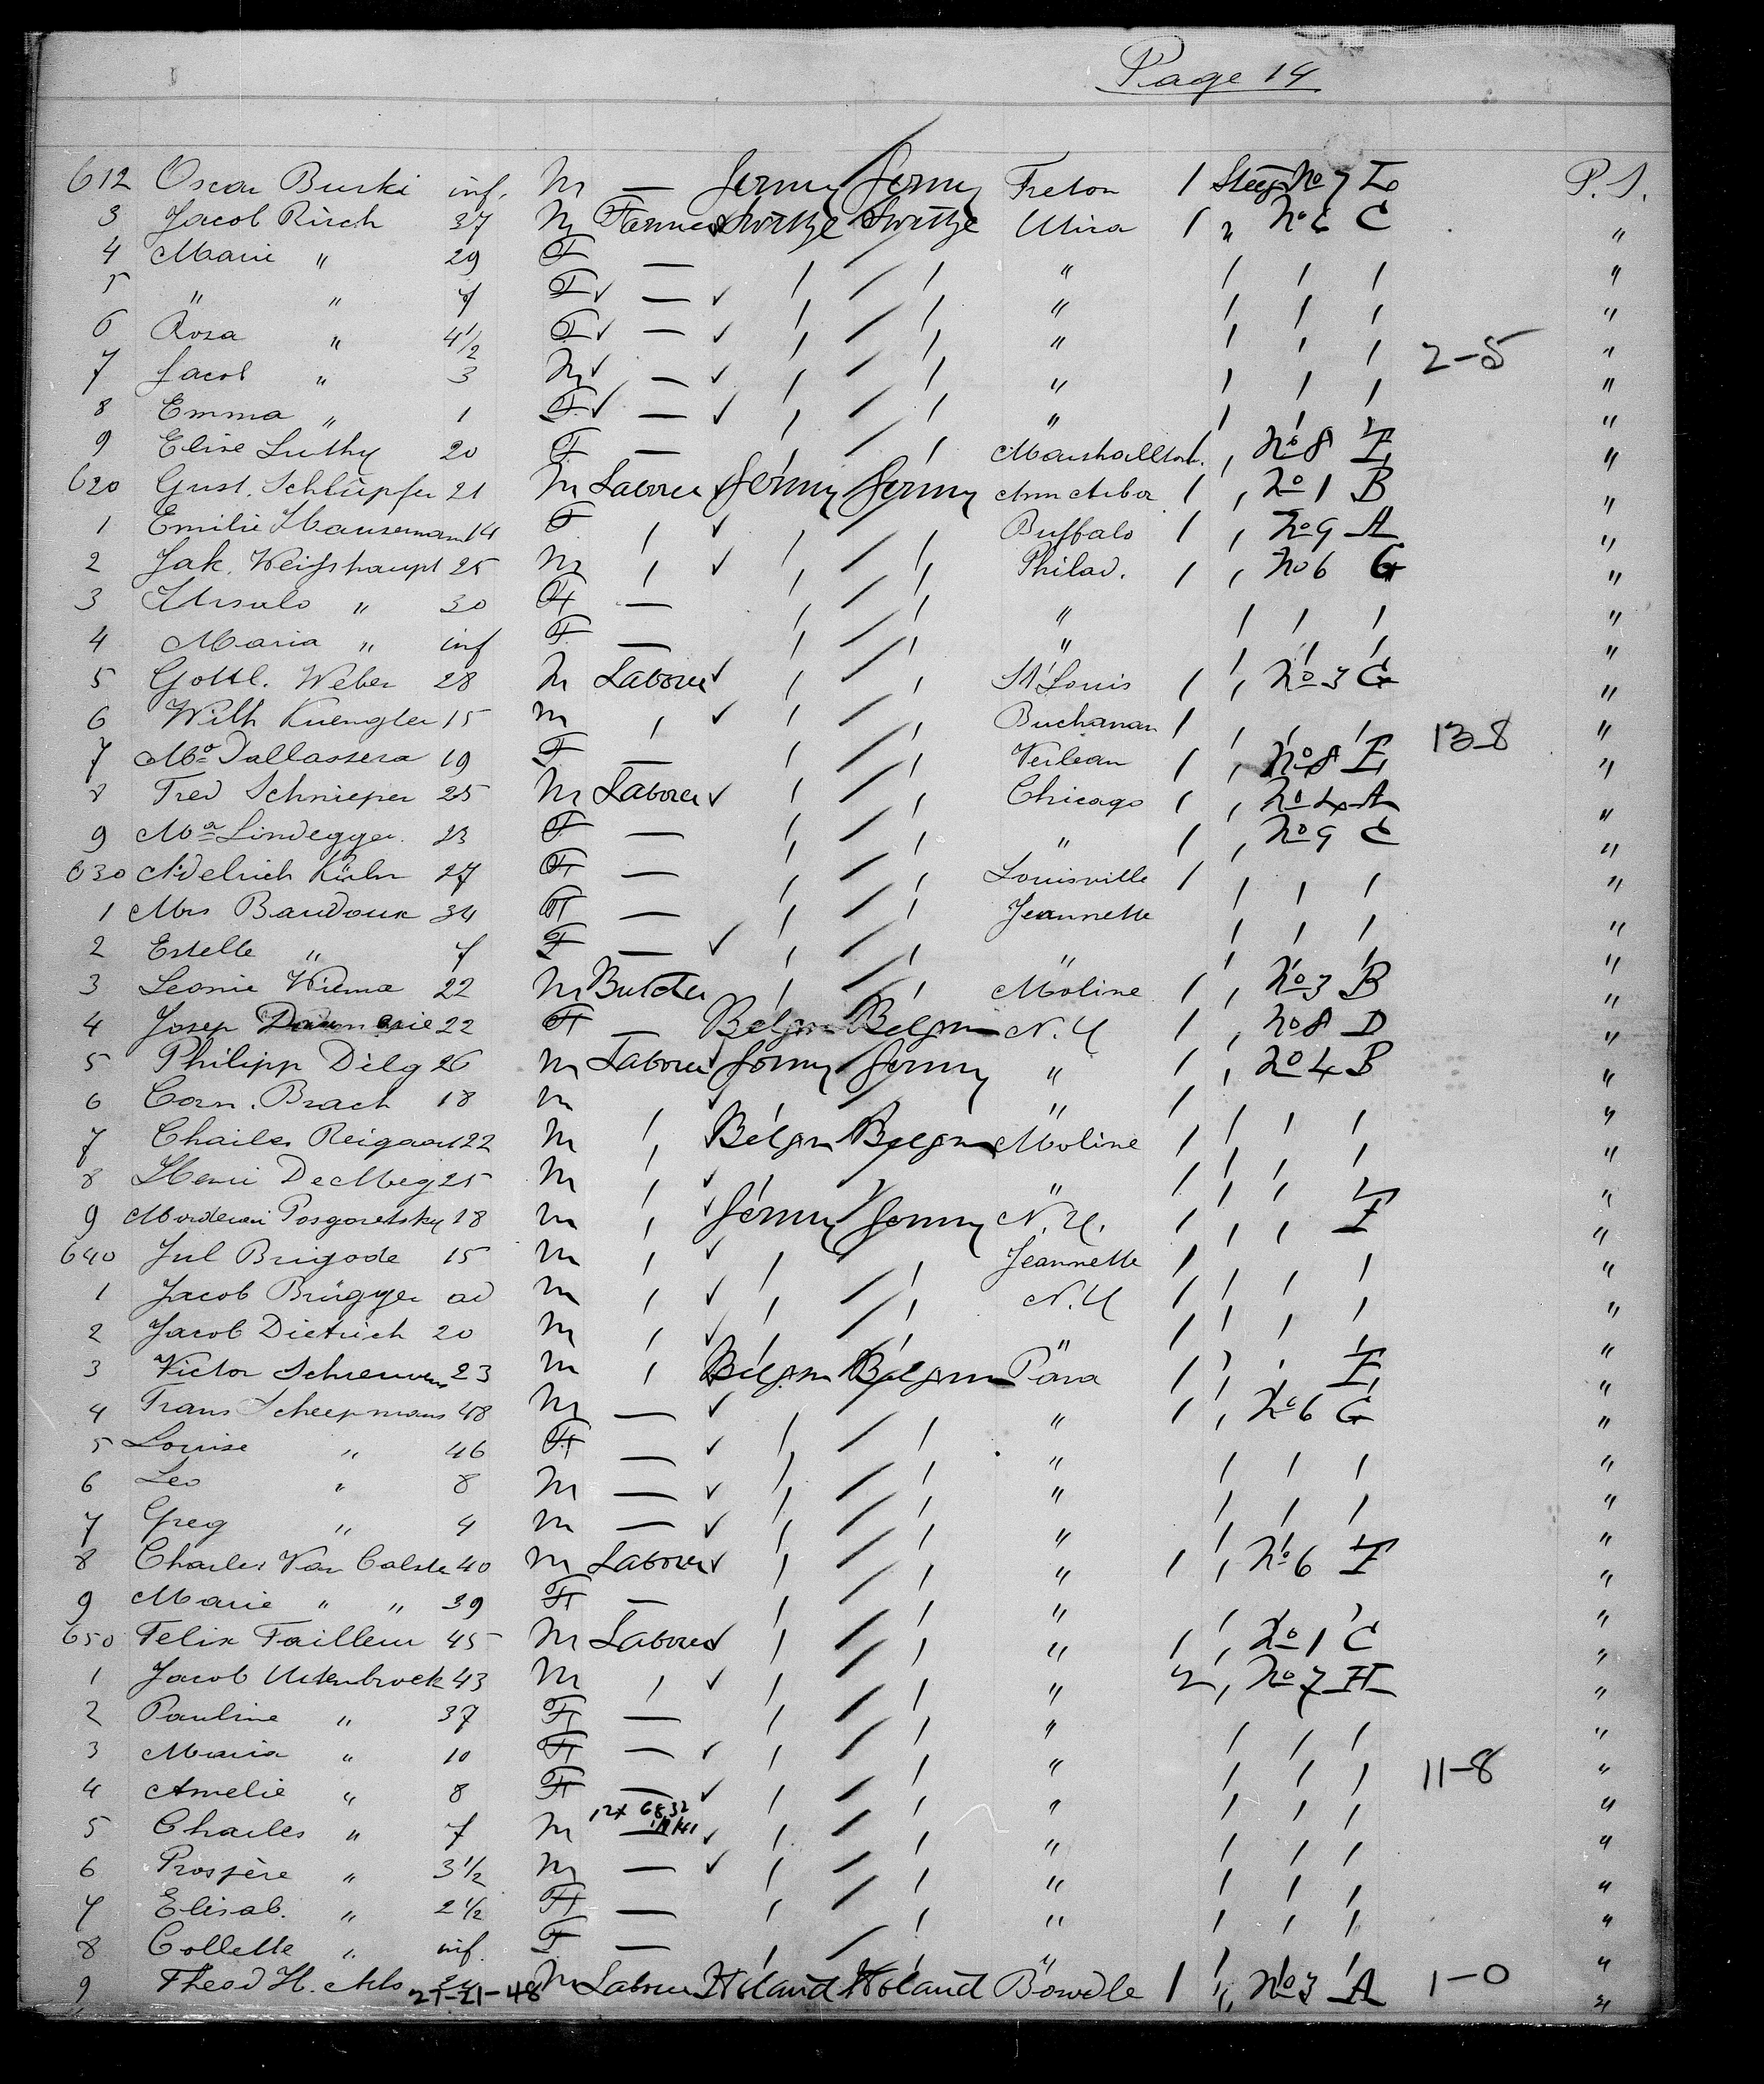 Page 14
612 Oscar Burki inf. M — Germy Germy Freton 1 Steeg No 7 E P.S.
3 Jacob Risch 37 M Farmer Swittze Swittze Utica 1 " No 6 C "
4 Marie " 29 F — " "
5 " " 7 F ✓ — ✓ " "
6 Rosa " 4 1/2 F ✓ — ✓ " 2-5 "
7 Jacob " 3 M ✓ — ✓ " "
8 Emma " 1 F ✓ — ✓ " "
9 Elise Luthy 20 F — No 8 E "
620 Gust. Schlüpfer 21 M Laborer ✓ Germy Germy Ann Arbor 1 No 1 B "
1 Emilie Hausermann 14 F ✓ Buffalo 1 No 9 A "
2 Jak. Weisshaupt 25 M ✓ Philad. 1 No 6 G "
3 Ursula " 30 F — " "
4 Maria " inf F — " "
5 Gottl. Weber 28 M Laborer ✓ St Louis 1 No 3 G "
6 Wilh Kuengler 15 M ✓ Buchanan 1 13-8 "
7 Ma Dallassera 19 F — 1 No 8 E "
8 Fred Schnieper 25 M Laborer ✓ Chicago 1 No 4 A "
9 Ma Lindegger 23 F — " 1 No 9 C "
630 Adelrich Kühn 27 F — Louisville 1 "
1 Mrs Baudoux 34 F — Jeannette "
2 Estelle " 7 F — ✓ " "
3 Leonie 22 M Butcher Moline 1 No 3 B "
4 Josep 22 F — Belgm Belgm N.Y. 1 No 8 D "
5 Philipp Dilg 26 M Laborer ✓ Germy Germy " 1 No 4 B "
6 Corn. Brach 18 M ✓ " 1 "
7 Charles 22 M Belgm Belgm Moline 1 "
8 Henri 25 M ✓ " 1 "
9 Posgoretsky 18 M ✓ Germy Germy N.Y. 1 E "
640 Jul Brigode 15 M ✓ Jeannette 1 "
1 Jacob Brügger ad M ✓ N.Y 1 "
2 Jacob Dietrich 20 M ✓ " 1 "
3 Victor Schreuvens 23 M Belgm Belgm Pana 1 E "
4 Frans Scheepmans 48 M — ✓ " 1 No 6 G "
5 Louise " 46 F — ✓ " "
6 Leo " 8 M — ✓ " "
7 Greg " 4 M — ✓ " "
8 Charles Van Calste 40 M Laborer ✓ " 1 No 6 E "
9 Marie " " 39 F — " "
650 Felix Failleur 45 M Laborer ✓ " 1 No 1 C "
1 Jacob Utenbroek 43 M ✓ " 2 No 7 H "
2 Pauline " 37 F — " "
3 Maria " 10 F — ✓ " 11-8 "
4 Amelie " 8 F — ✓ " "
5 Charles " 7 M — ✓ " "
6 Prospère " 3 1/2 M — ✓ " "
7 Elisab. " 2 1/2 F — " "
8 Collette " inf. F — " "
9 Theod H. M Laborer Holand Holand Bowdle 1 " No 3 A 1-0 "